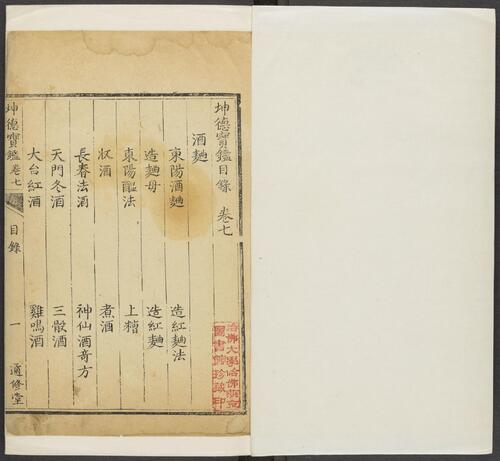 坤德寶鑑目錄 卷七
酒麯
東陽酒麯 造紅麯法
造麯母 造紅麯
東陽醞法 上糟
収酒 煮酒
長春法酒 神仙酒奇方
天門冬酒 三骰酒
大台紅酒 雞鳴酒
坤德寶鑑 卷七 目錄 一 適修堂
哈佛大學哈佛燕京
圖書館珍藏印